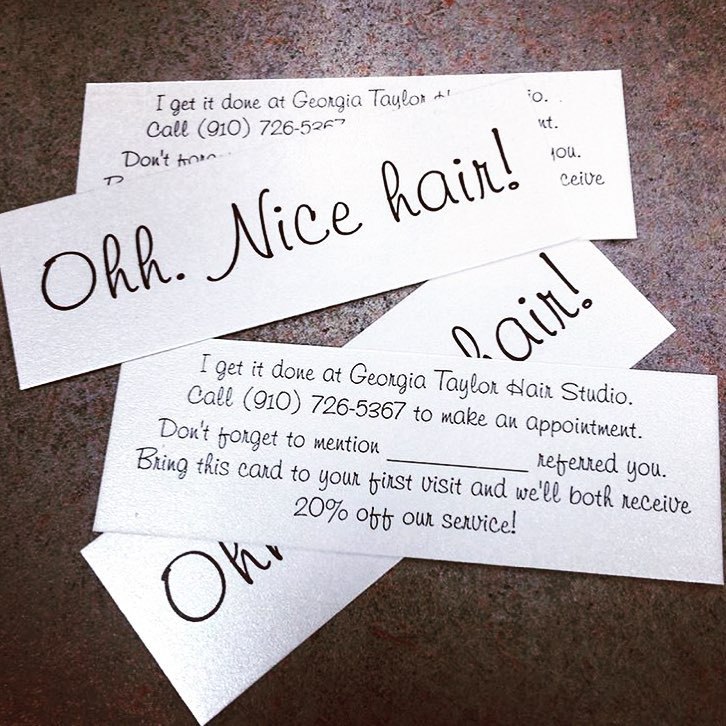 I get it done at Georgia Taylor
Call (910) 726-5367
Don't
nt.
you.
ceive
Ohh. Nice hair!
hair!
I get it done at Georgia Taylor Hair Studio.
Call (910) 726-5367 to make an appointment.
Don't forget to mention ____________ referred you.
Bring this card to your first visit and we'll both receive
20% off our service!
Ohh